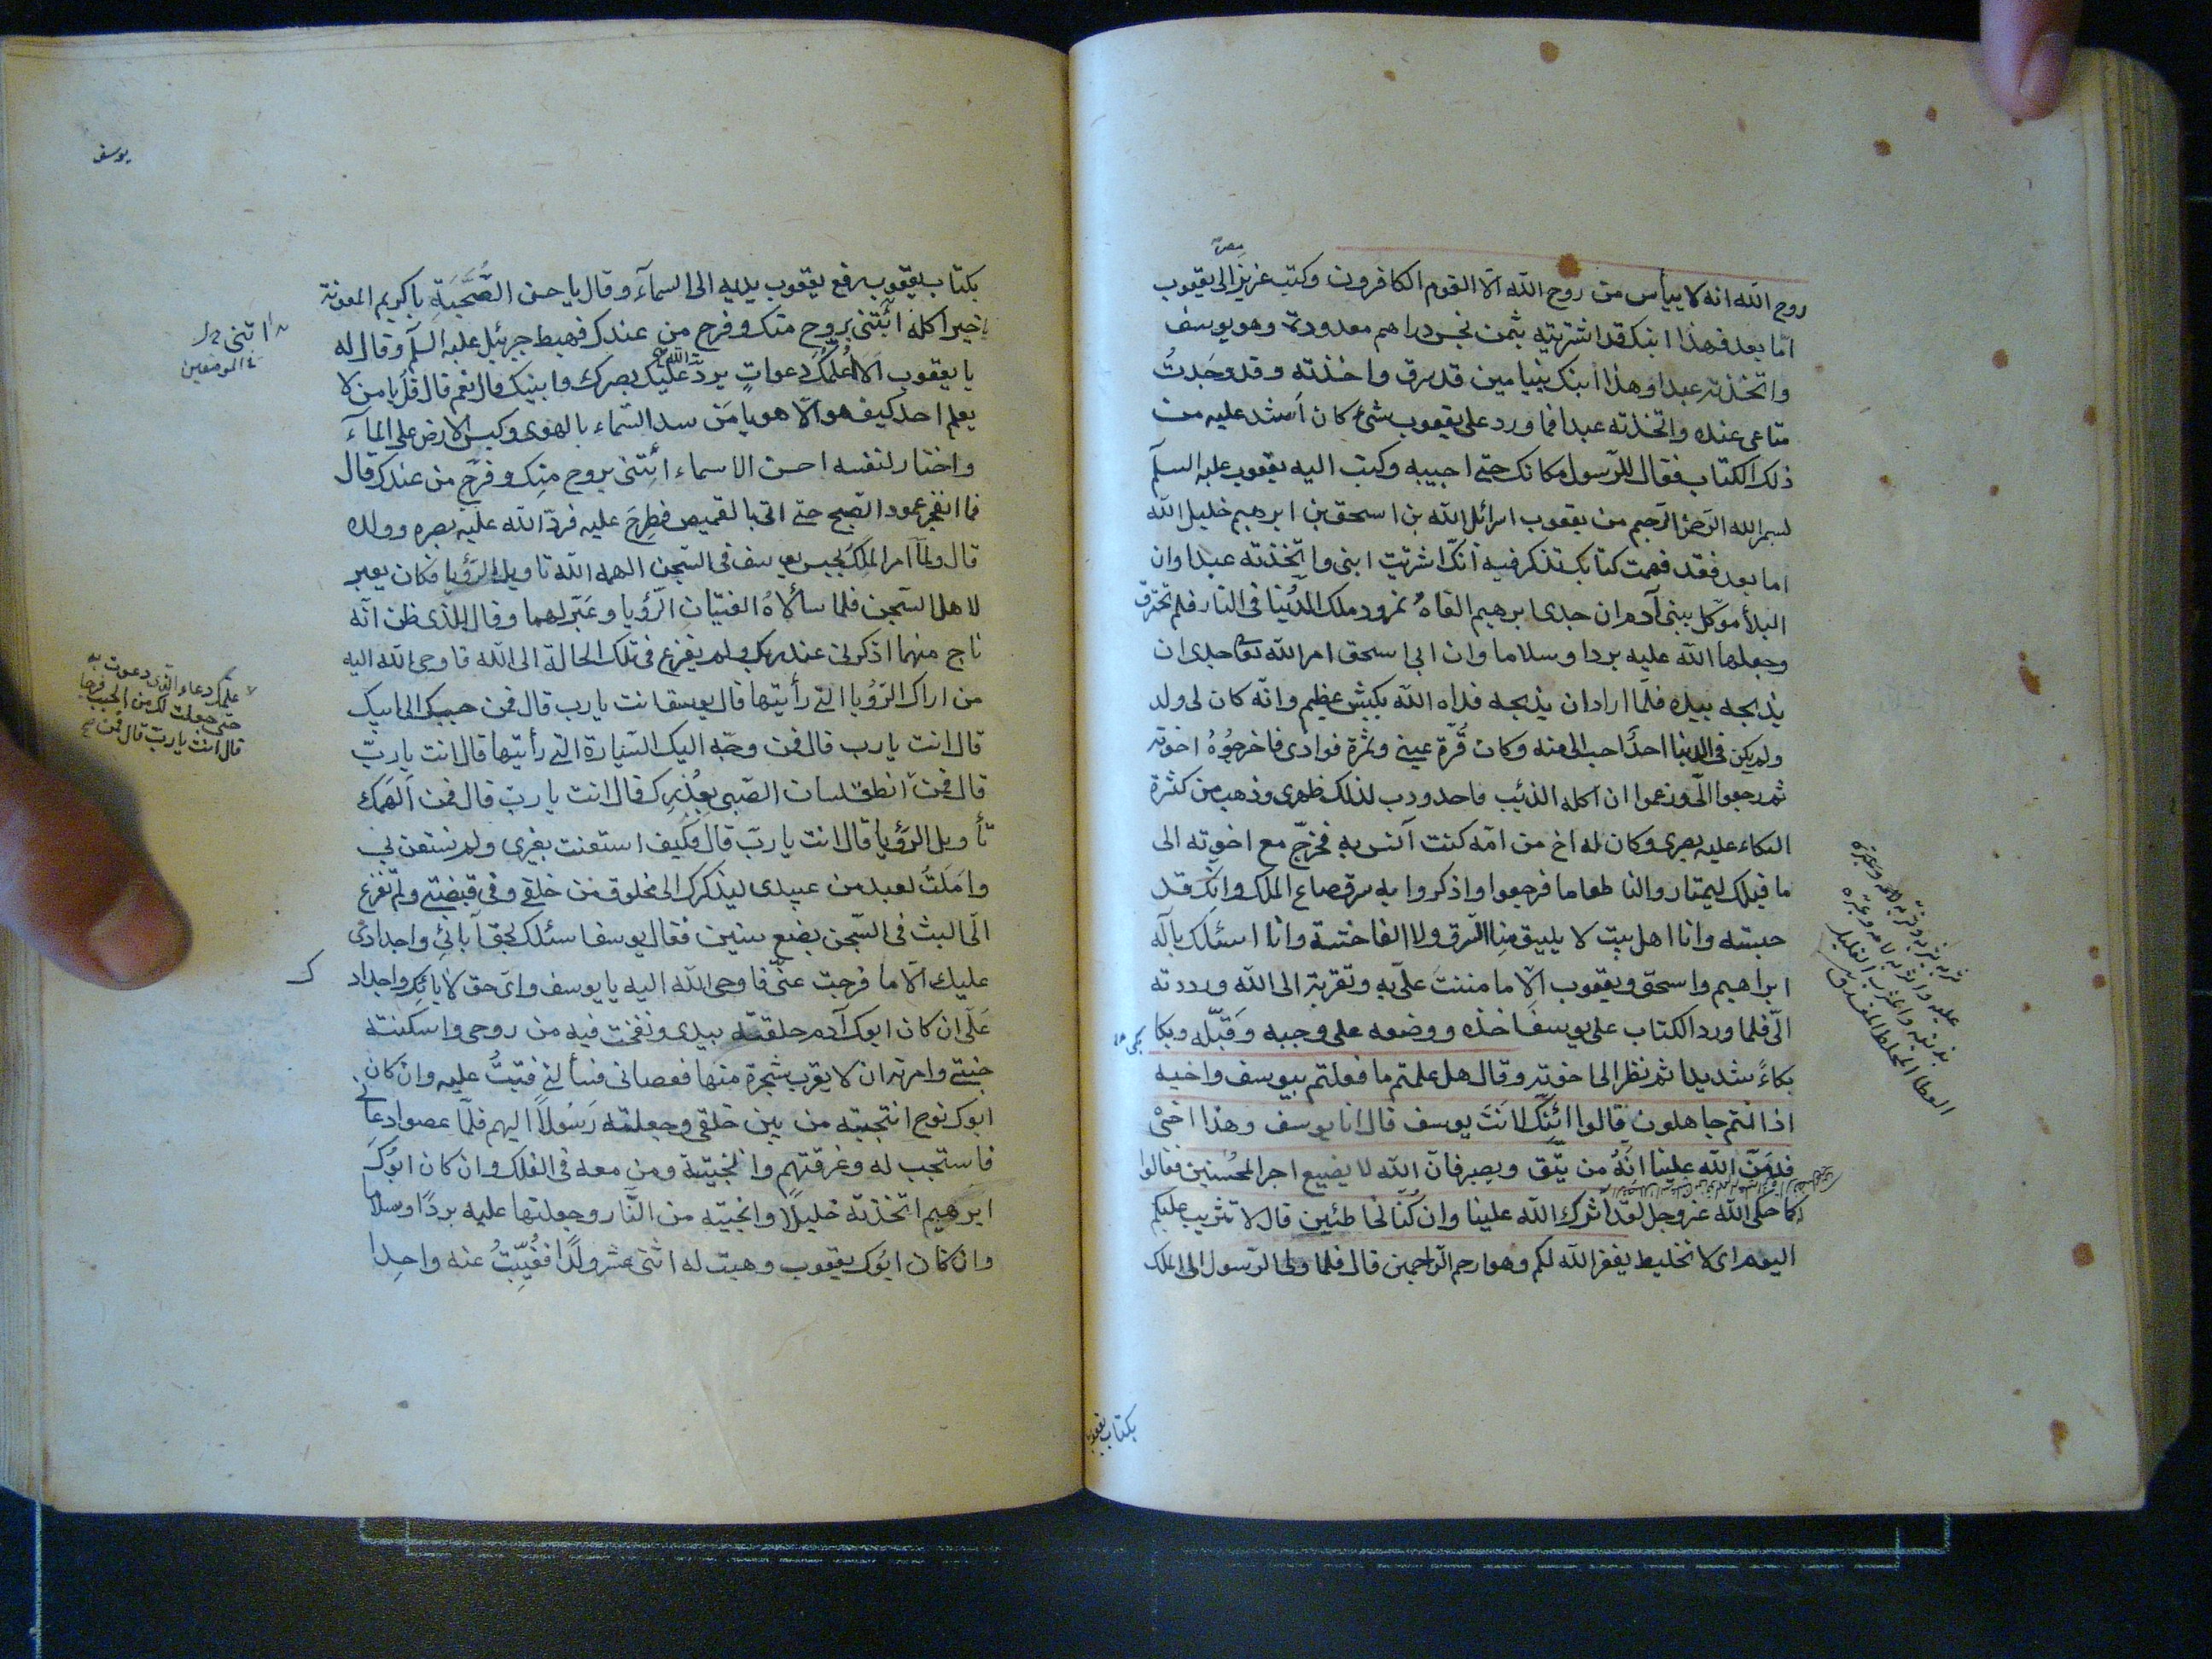 روح الله انه لا ييأس من روح الله الا القوم الكافرون وكتب عزيز مصر الى يقوب
امّا بعد فهذا ابنك قد اشتريته بثمن نجس دراهم معدودة وهو يوسف
واتخذته عبدا وهذا ابنك بنيامين قد سرق واخذته وقد وجدتُ
متاعى عنده واتخذته عبدا فما ورد على يعقوب شئ كان اَشد عليه من
ذلك الكتاب فقال للرّسول مكانك حتى اجيبه وكتب اليه يعقوب عليه السلم
بسم الله الرّحمن الرّحيم من يعقوب اسرائل الله بن اسحق بن ابرهيم خليل الله
اما بعد فقد فهمت كتابك تذكر فيه انّك اشتريت ابنى واتخذته عبدا وان
البلأ موكّل ببنى آدم ان جدى ابرهيم القاهُ نمرود ملك الدُّنيا فى النار فلم تحترق
وجعلها الله عليه بردا وسلاما وان ابى اسحق امر الله تعا جدى ان
يذبحه بيده فلمّا اراد ان يذبحه فداه الله بكبش عظيم وانّه كان لى ولد
ولم يكن فى الدنيا احدًا احب الى منه وكان قُرّة عينى وثمرة فوادى فاخرجُوهُ اخوته
ثم رجعوا الىّ وزعموا ان اكله الذئب فاحدودب لذلك ظهرى وذهب من كثرة
البكاء عليه بصرى وكان له اخ من امّه كنت آنس به فخرجَ مع اخوته الى
ما قبلك ليمتار والنا طعاما فرجعوا واذكروا به سرق صاع الملك وانك قد
حبسته وانا اهل بيت لا يليق منا السّرق ولا الفاحشة وانا اسئلك بآله
ابراهيم واسحق ويعقوب الّا ما مننتَ علىّ به وتقربتَ الى الله ورددته
الىّ فلما ورد الكتاب على يوسف اخذه ووضعه على وجهه وقَبّله وبكا
بكاءً شديدا ثم نظر الى اخوته وقال هل علمتم ما فعلتم بيوسف واخيه
اذ انتم جاهلون قالوا ائنّك لانتَ يوسف قال انا يوسف وهذا اخىْ
قد منّ الله علينا انّهُ من يتّق ويصبر فان الله لا يضيع اجر المحسنين فقالوا
كما حكى الله عز وجل لقد اثرك الله علينا وان كُنّا لخاطئين قال لا تثريب عليكم
اليوم اى لا تخليط يغفر الله لكم وهو ارحم الرّاحمين قال فلما ولى الرّسول الى الملك
بكتاب يعقوب
يوسف
بكتاب يعقوب رفع يعقوب يديه الى السمآء وقال يا حسن الصُّحبَةِ يا كريم المعونة
يا خيرا كله ائتنى بروح منك وفرج من عندك فهبط جبرئيل عليه السلم وقال له
يا يعقوب الا اُعلمك دعواتٍ يردّ الله عليك بصرك وابنيك قال نعم قال قل يا من لا
يعلم احد كيف هو الّا هو يا مَن سد السّماء بالهوى وكبس الارض على المآء
واختار لنفسه احسن الاسماء ائتنى بروح منِك وفرَج من عندك قال
فما انفجر عمود الصّبح حتى اتى بالقميص فطرِحَ عليه فردّ الله عليه بصره وولده
قال ولمّا امر الملِك بحبس يوسف فى السّجن الهمه الله تاويل الرّؤيا فكان يعبر
لاهل السّجن فلما سألاهُ الفتيان الرّؤيا وعَبّر لهما وقال للذى ظن انّه
ناج منهما اذكرنى عند ربك ولم يفزع فى تلك الحالة الى الله فاوحى الله اليه
من اراك الرّؤيا التى رأيتها قال يوسف انت يا رب قال فمن حببك الى ابيك
قال انت يا رب قال فمن وجّه اليك السّيارة التى رأيتها قال انت يا ربّ
علّمك دعاء الذى دعوت به
حتى جعلت لك من الجب فرجا
قال انت يا ربّ قال فمن
قال فمن انطق لسان الصّبى بعُذرِك قال انت يا ربّ قال فمن اَلهمك
تأويل الرّؤيا قال انت يا ربّ قال فكيف استعنت بغيرى ولم تستعن بى
واَملَتَ لعبد من عبيدى ليذكرك الى مخلوق من خلقى وفى قبضتى ولم تفزع
الىّ البث فى السّجن بضع سنين فقال يوسف اسئلك بحق آبائى واجدادى
عليك الّا ما فرجت عنّى فاوحى الله اليه يا يوسف واىّ حق لآبائك واجداد
عَلىّ ان كان ابوك آدم خلقته بيدى ونفخت فيه من روحى واسكنته
جنتى وامرته ان لا يقرب شجرة منها فعصانى فسألنى فتبتُ عليه وان كان
ابوك نوح انتجبته من بين خلقى وجعلته رَسُولًا اليهم فلمّا عصوا دعانى
فاستجب له وغرقتهم وانجيته ومن معه فى الفلك وان كان ابوُك
ابرهيم اتخذته خليلًا وانجيته من النّار وجعلتها عليه بردًا وسلاما
وان كان ابوُك يعقوب وهبت له اثنى عشر ولدًا فغُيّبتُ عنه واحِدا